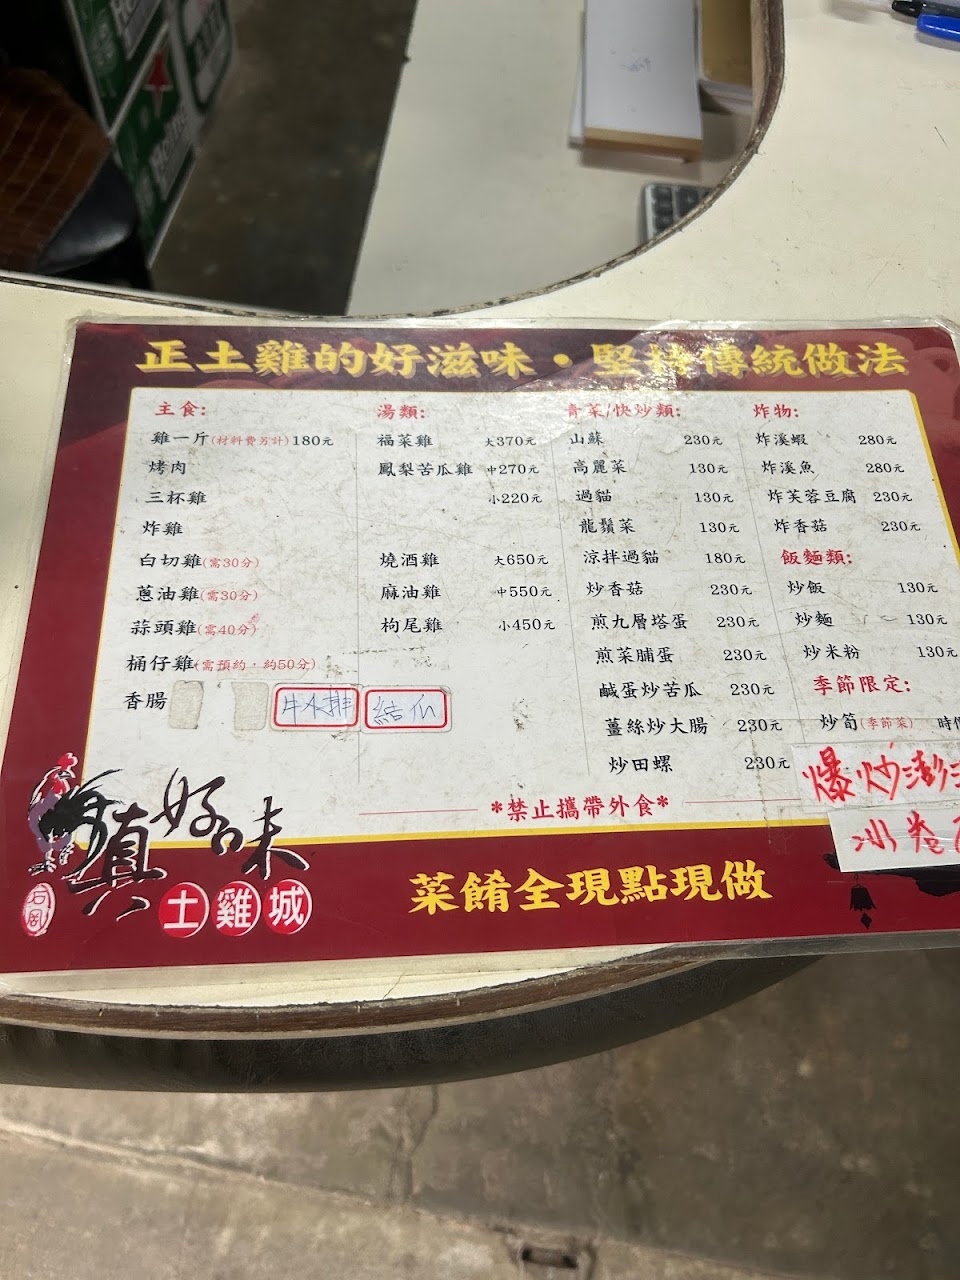 正土雞的好滋味・堅持傳統做法
主食:
雞一斤(材料費另計)180元
烤肉
三杯雞
炸雞
白切雞(需30分)
蔥油雞(需30分)
蒜頭雞(需40分)
桶仔雞(需預約,約50分)
香腸
牛小排
結瓜
湯類:
福菜雞 大370元
鳳梨苦瓜雞 中270元
小220元
燒酒雞 大650元
麻油雞 中550元
枸尾雞 小450元
青菜/快炒類:
山蘇 230元
高麗菜 130元
過貓 130元
龍鬚菜 130元
涼拌過貓 180元
炒香菇 230元
煎九層塔蛋 230元
煎菜脯蛋 230元
鹹蛋炒苦瓜 230元
薑絲炒大腸 230元
炒田螺 230元
炸物:
炸溪蝦 280元
炸溪魚 280元
炸芙蓉豆腐 230元
炸香菇 230元
飯麵類:
炒飯 130元
炒麵 130元
炒米粉 130元
季節限定:
炒筍(季節菜) 時
爆炒澎
冰卷
*禁止攜帶外食*
真好味
土雞城
菜餚全現點現做